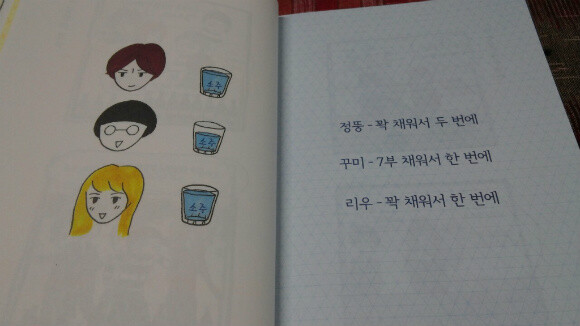 소주
소주
소주
정뚱 - 꽉 채워서 두 번에
꾸미 - 7부 채워서 한 번에
리우 - 꽉 채워서 한 번에